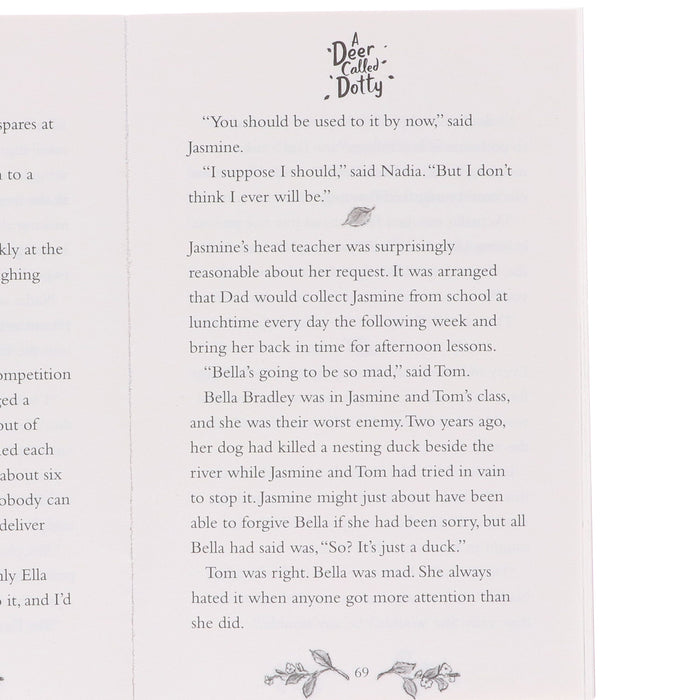 spares at
to a
at the
A
Deer
Called
Dotty
"You should be used to it by now," said
Jasmine.
"I suppose I should," said Nadia. "But I don't
think I ever will be."
Jasmine's head teacher was surprisingly
reasonable about her request. It was arranged
that Dad would collect Jasmine from school at
lunchtime every day the following week and
bring her back in time for afternoon lessons.
"Bella's going to be so mad," said Tom.
Bella Bradley was in Jasmine and Tom's class,
and she was their worst enemy. Two years ago,
her dog had killed a nesting duck beside the
river while Jasmine and Tom had tried in vain
to stop it. Jasmine might just about have been
able to forgive Bella if she had been sorry, but all
Bella had said was, "So? It's just a duck."
Tom was right. Bella was mad. She always
hated it when anyone got more attention than
she did.
69